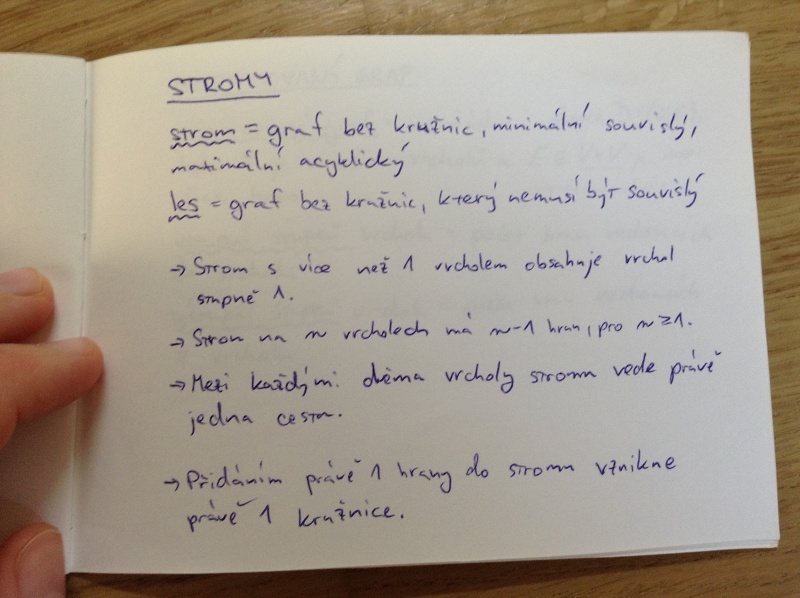 STROMY
strom = graf bez kružnic, minimální souvislý,
maximální acyklický
les = graf bez kružnic, který nemusí být souvislý
→ Strom s více než 1 vrcholem obsahuje vrchol
stupně 1.
→ Strom na n vrcholech má n-1 hran, pro n ≥ 1.
→ Mezi každými dvěma vrcholy stromu vede právě
jedna cesta.
→ Přidáním právě 1 hrany do stromu vznikne
právě 1 kružnice.